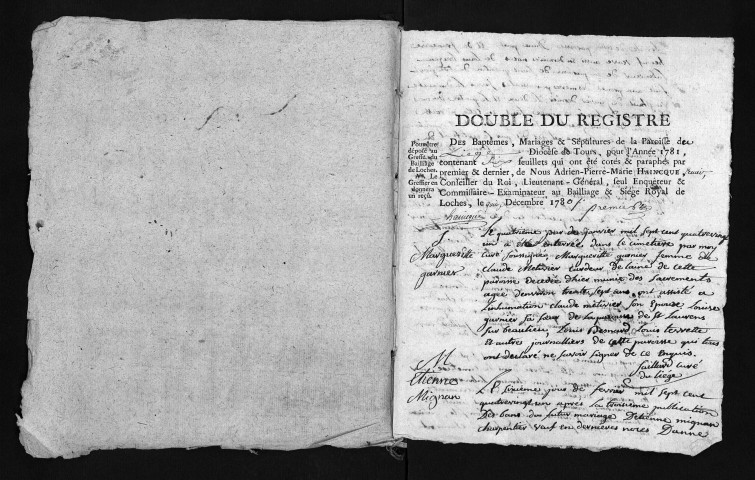 DOUBLE DU REGISTRE
Pour être
déposé au
Greffe du
Bailliage
de Loches,
Le
Greffier en
donnera
un reçu.
Des Baptêmes, Mariages & Sépultures de la Paroisse du
Liege Diocèse de Tours, pour l'Année 1781,
contenant feuillets qui ont été cotés & paraphés par
premier & dernier, de Nous Adrien-Pierre-Marie HAINCQUE,
Conseiller du Roi, Lieutenant-Général, seul Enquêteur &
Commissaire-Examinateur au Bailliage & Siége Royal de
Loches, le Décembre 1780 premier
haincque
S
Margueritte
garnier
Le quatrieme jour de janvier mil sept cent quatrevingt
un a été enterrée dans le cimetiere par moy
curé soussigné, Marguerite garnier femme de
claude Metivier cardeur de laine de cette
paroisse decedée d'hier munie des sacrements
agée denviron trente sept ans, ont assisté a
l'inhumation claude metivier son Epoux, louise
garnier sa sœur de la paroisse de st laurens
sur beaulieu, louis Besnard, louis terrette
et autres journalliers de cette paroisse qui tous
ont declaré ne savoir signer de ce Enquis.
Saillard curé
du liege
M
Etienne
Mignan
Le sixieme jour de fevrier mil sept cent
quatrevingt un apres la troisieme publication
Des bans du futur mariage D'etienne mignan
charpentier veuf en dernieres noces D'anne